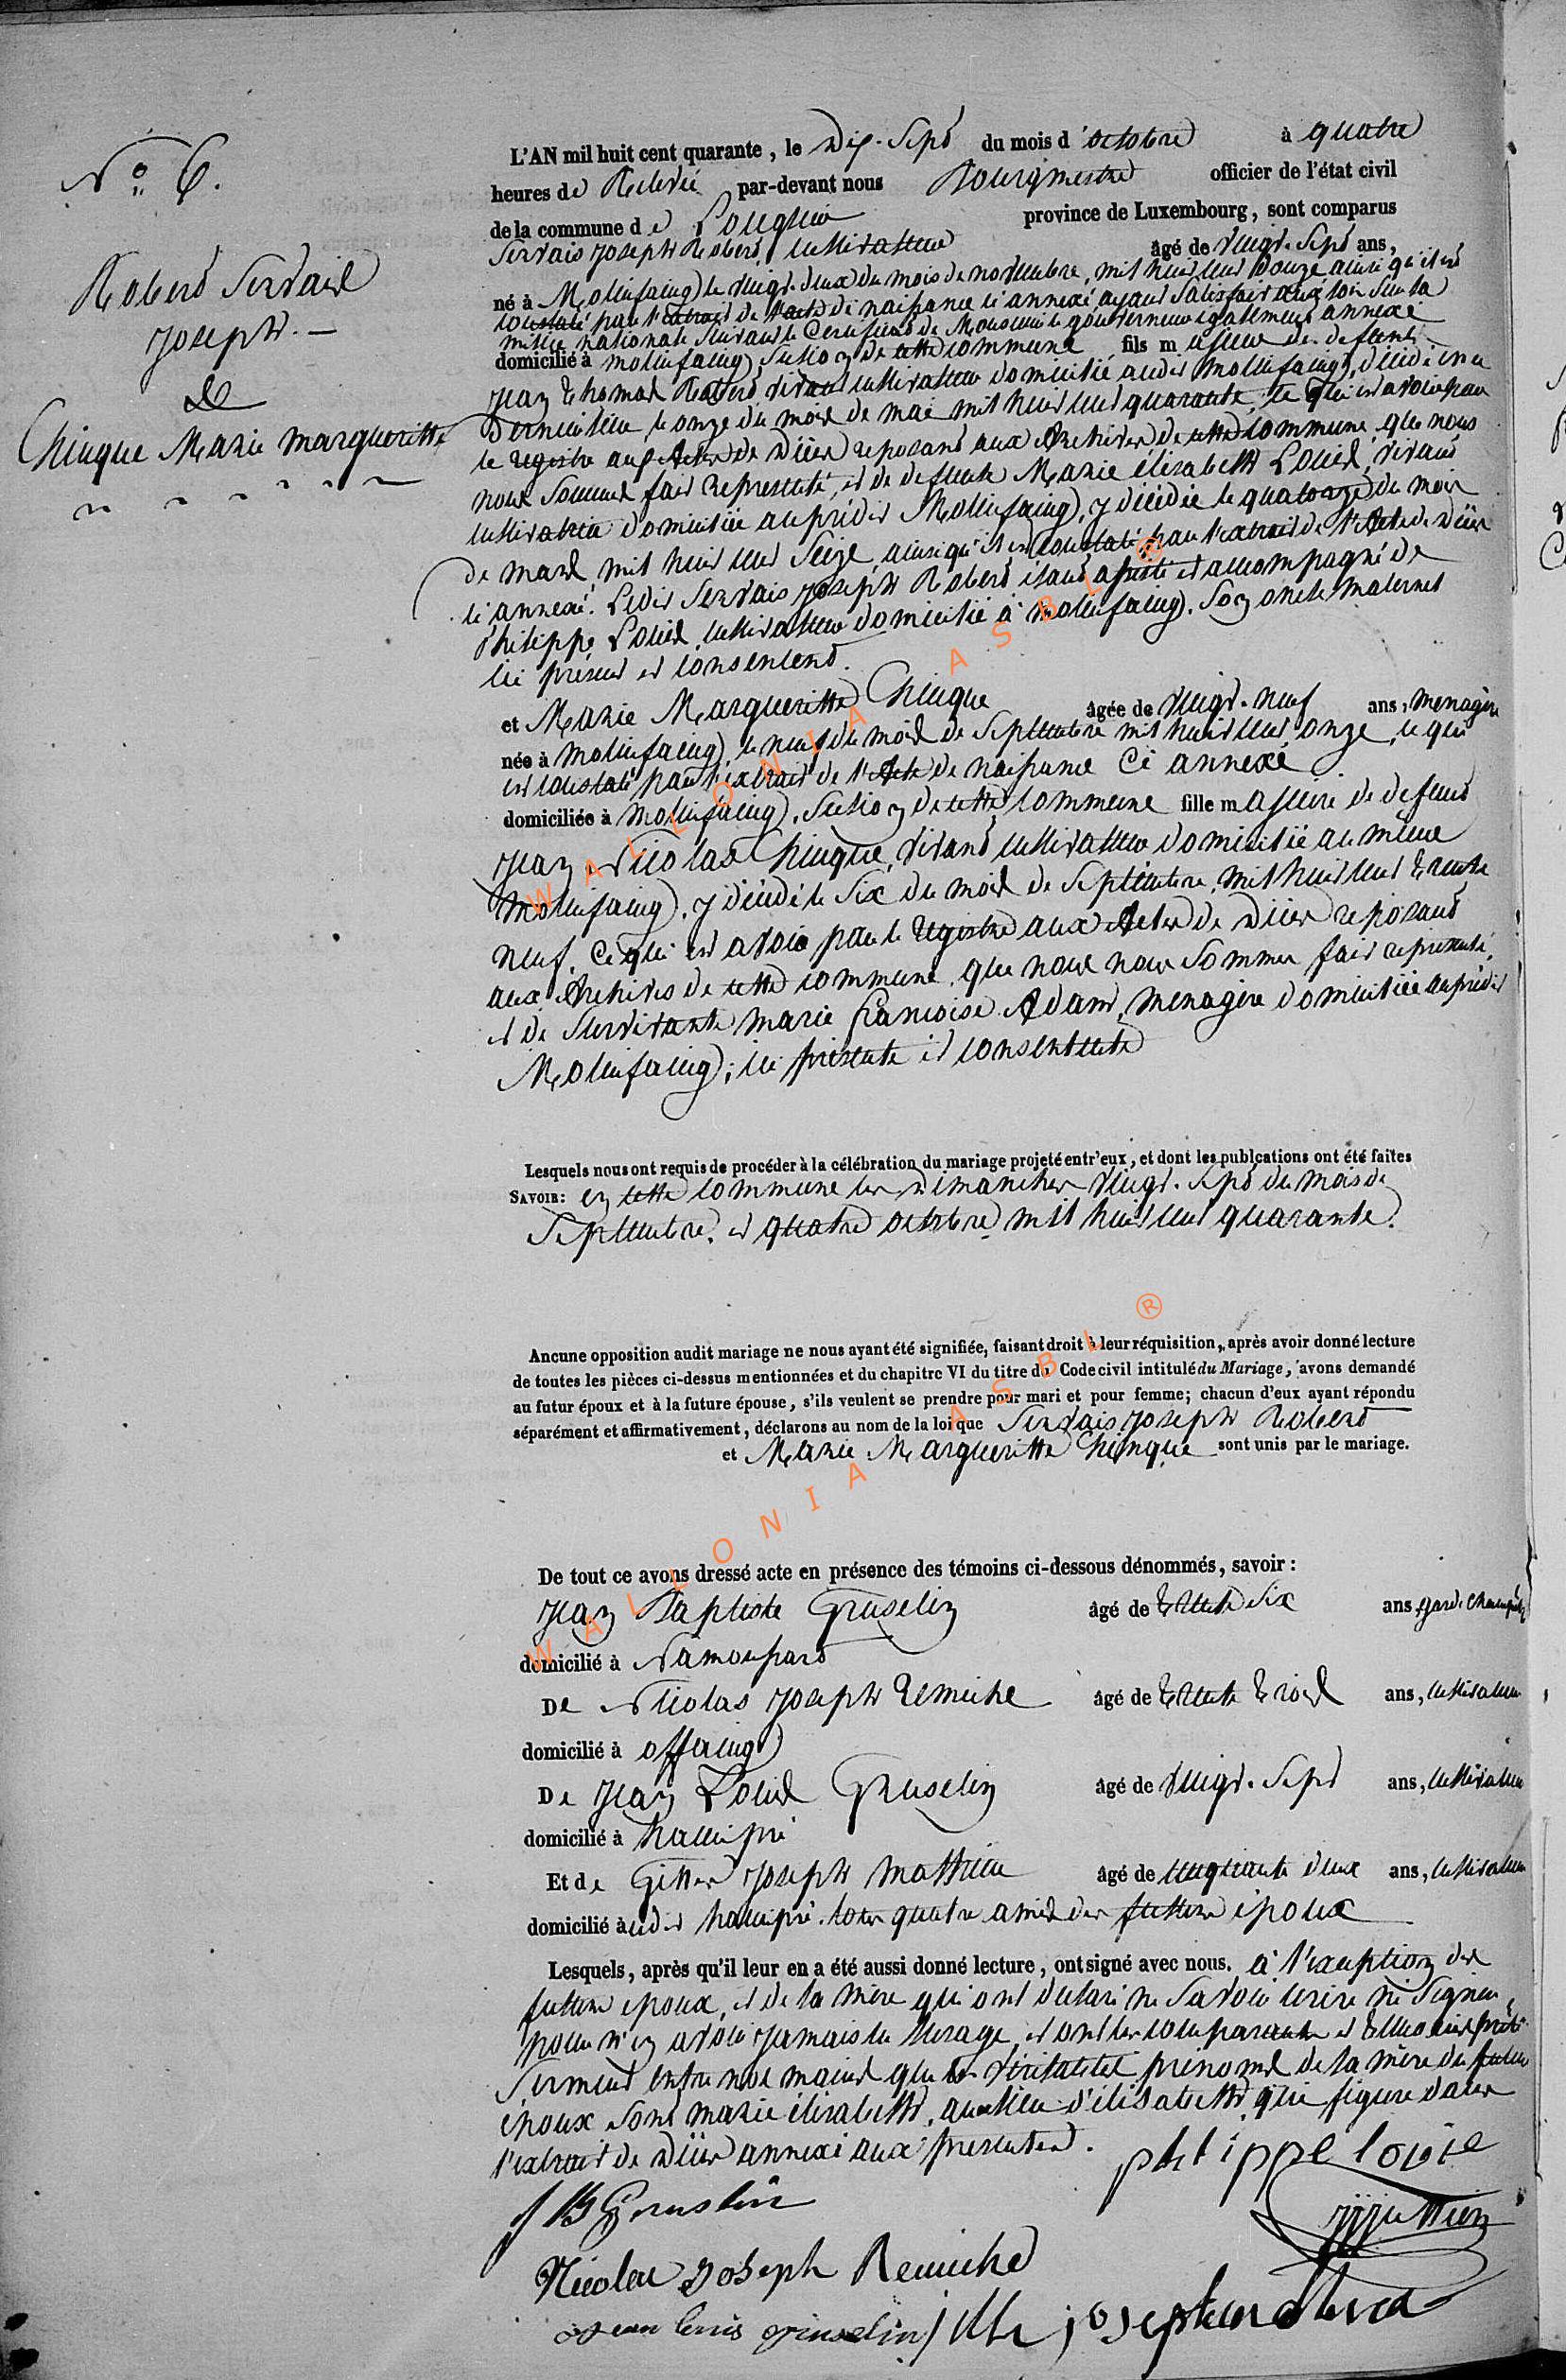 N° 6.
Robert Servais
Joseph. —
&
Chinque Marie Margueritte
L'AN mil huit cent quarante, le Dix-Sept du mois d'octobre à quatre
heures de Relevée par-devant nous Bourgmestre officier de l'état civil
de la commune de province de Luxembourg, sont comparus
Servais Joseph Robert, cultivateur âgé de vingt-Sept ans,
né à Mollinfaing, le vingt-deux du mois de novembre, mil huit cent Douze ainsi qu'il est
constaté par l'extrait de l'acte de naissance ci annexé, ayant satisfait aux lois sur la
milice nationale suivant le Certificat de Monsieur le gouverneur également annexé
domicilié à mollinfaing, Section de cette commune fils majeur de defunt
Jean Thomas Robert, vivant cultivateur domicilié audit Mollinfaing, décédé en ce
dernier lieu, le onze du mois de mai mil huit cent quarante, ce qui est avoir par
le registre aux Actes de Décès reposant aux Archives de cette commune, que nous
nous sommes fait représenté, et de defunte Marie élisabeth Louis, vivant
cultivatrice domiciliée au prédit Mollinfaing, y décédée le quatorze du mois
de mars mil huit cent Seize, ainsi qu'il est constaté par l'extrait de l'Acte de Décès
ci annexé. Ledit Servais Joseph Robert étant assisté et accompagné de
Philippe Louis, cultivateur domicilié à mollinfaing. Son oncle maternel
ici présent et consentent.
et Marie Margueritte Chinque âgée de vingt-neuf ans, menagère
née à mollinfaing, le neuf du mois de Septembre mil huit cent onze, ce qui
est constaté par l'extrait de l'Acte de naissance Ci annexé
domiciliée à mollinfaing, Section de cette commune fille majeure de defunt
Jean Nicolas Chinque, vivant cultivateur domicilié au même
Mollinfaing, y décédé le Six du mois de Septembre, mil huit cent trente
neuf, Ce qui est avoir par le registre aux Actes de Décès reposant
aux Archives de cette commune que nous nous sommes fait représenté,
et de survivante marie francoise Adam, menagère domiciliée au prédit
Mollinfaing; ici présente et consentente
Lesquels nous ont requis de procéder à la célébration du mariage projeté entr'eux, et dont les publcations ont été faites
SAVOIR: en cette commune les Dimanches vingt-Sept du mois de
Septembre, et quatre octobre mil huit cent quarante.
Aucune opposition audit mariage ne nous ayant été signifiée, faisant droit à leur réquisition, après avoir donné lecture
de toutes les pièces ci-dessus mentionnées et du chapitre VI du titre du Code civil intitulé du Mariage, avons demandé
au futur époux et à la future épouse, s'ils veulent se prendre pour mari et pour femme; chacun d'eux ayant répondu
séparément et affirmativement, déclarons au nom de la loi que Servais Joseph Robert
et Marie Margueritte Chinque sont unis par le mariage.
De tout ce avons dressé acte en présence des témoins ci-dessous dénommés, savoir:
Jean Baptiste Gruselin âgé de trente Six ans, garde champêtre
domicilié à Namoussart
De Nicolas Joseph Remiche âgé de trente trois ans, cultivateur
domicilié à offaing
De Jean Louis Gruselin âgé de vingt-Sept ans, cultivateur
domicilié à hamipré
Et de Gilles Joseph Mathieu âgé de cinquante deux ans, cultivateur
domicilié audit hamipré. tous quatre amis des futurs époux
Lesquels, après qu'il leur en a été aussi donné lecture, ont signé avec nous. à l'exception des
futurs époux, et de la mère qui ont declaré ne savoir écrire ni signer
pour n'en avoir jamais eu l'usage, et ont les comparants et témoins prêté
Serment entre nos mains que les véritables prénoms de la mère du futur
époux sont marie élisabeth, au lieu d'élisabeth qui figure dans
l'extrait de Décès annexé aux présentes.
philippe louis
JB Gruslin
Nicolas Joseph Remiche
Jean louis gruselin
WALLONIA ASBL ®
WALLONIA ASBL ®